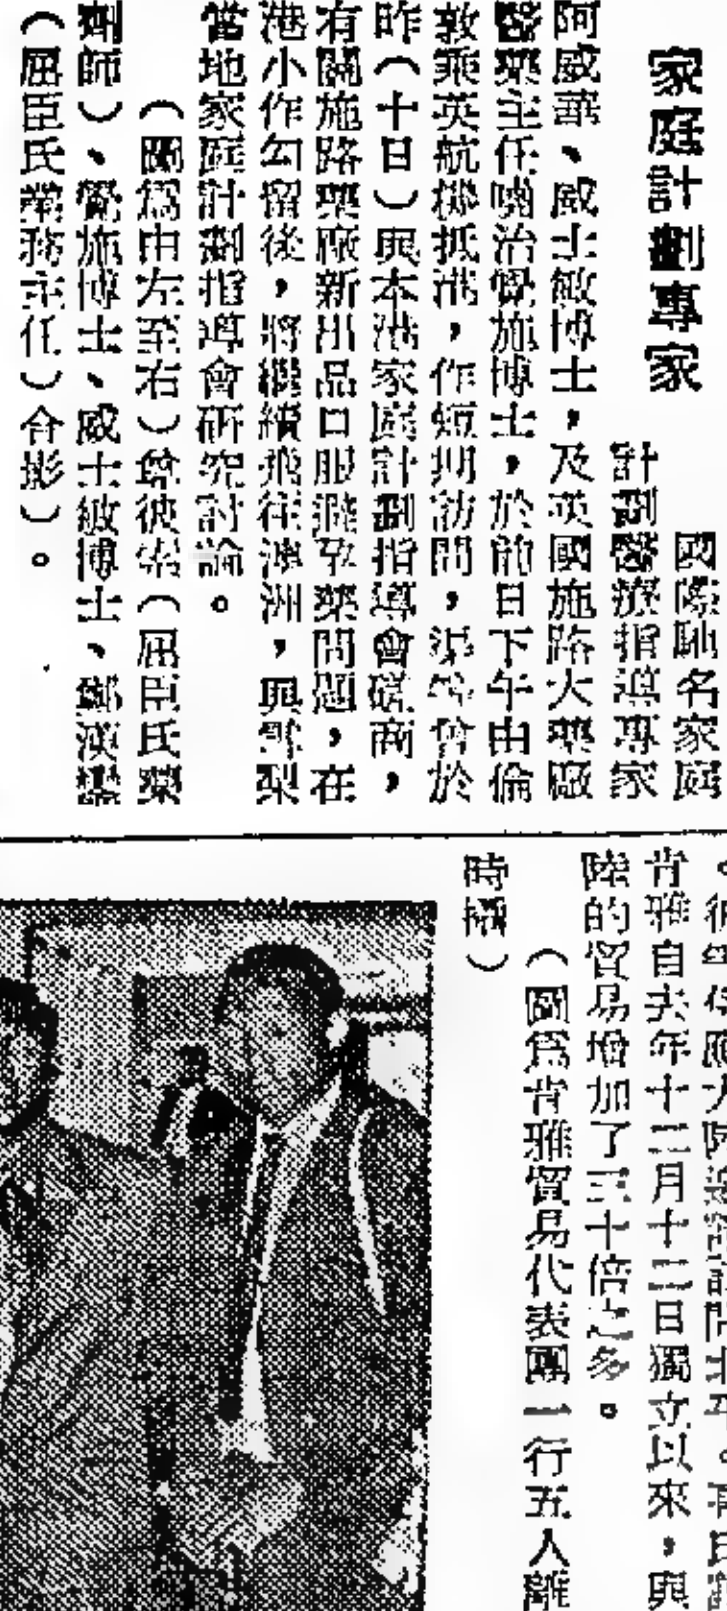 家庭計劃專家
國際馳名家庭
計劃醫療指導專家
阿威華、威士敏博士，及英國施路大藥廠
醫藥主任喃治覺施博士，於前日下午由倫
敦乘英航機抵港，作短期訪問，渠等曾於
昨（十日）與本港家庭計劃指導會磋商，
有關施路藥廠新出品口服避孕藥問題，在
港小作勾留後，將繼續飛往澳洲，與雪梨
當地家庭計劃指導會研究討論。
（圖爲由左至右）詹彼索（屈臣氏藥
劑師）、覺施博士、威士敏博士、鄭漢樂
（屈臣氏業務主任）合影）。
肯雅自去年十二月十二日獨立以來，與
陸的貿易增加了三十倍之多。
（圖爲肯雅貿易代表團一行五人離
時攝）